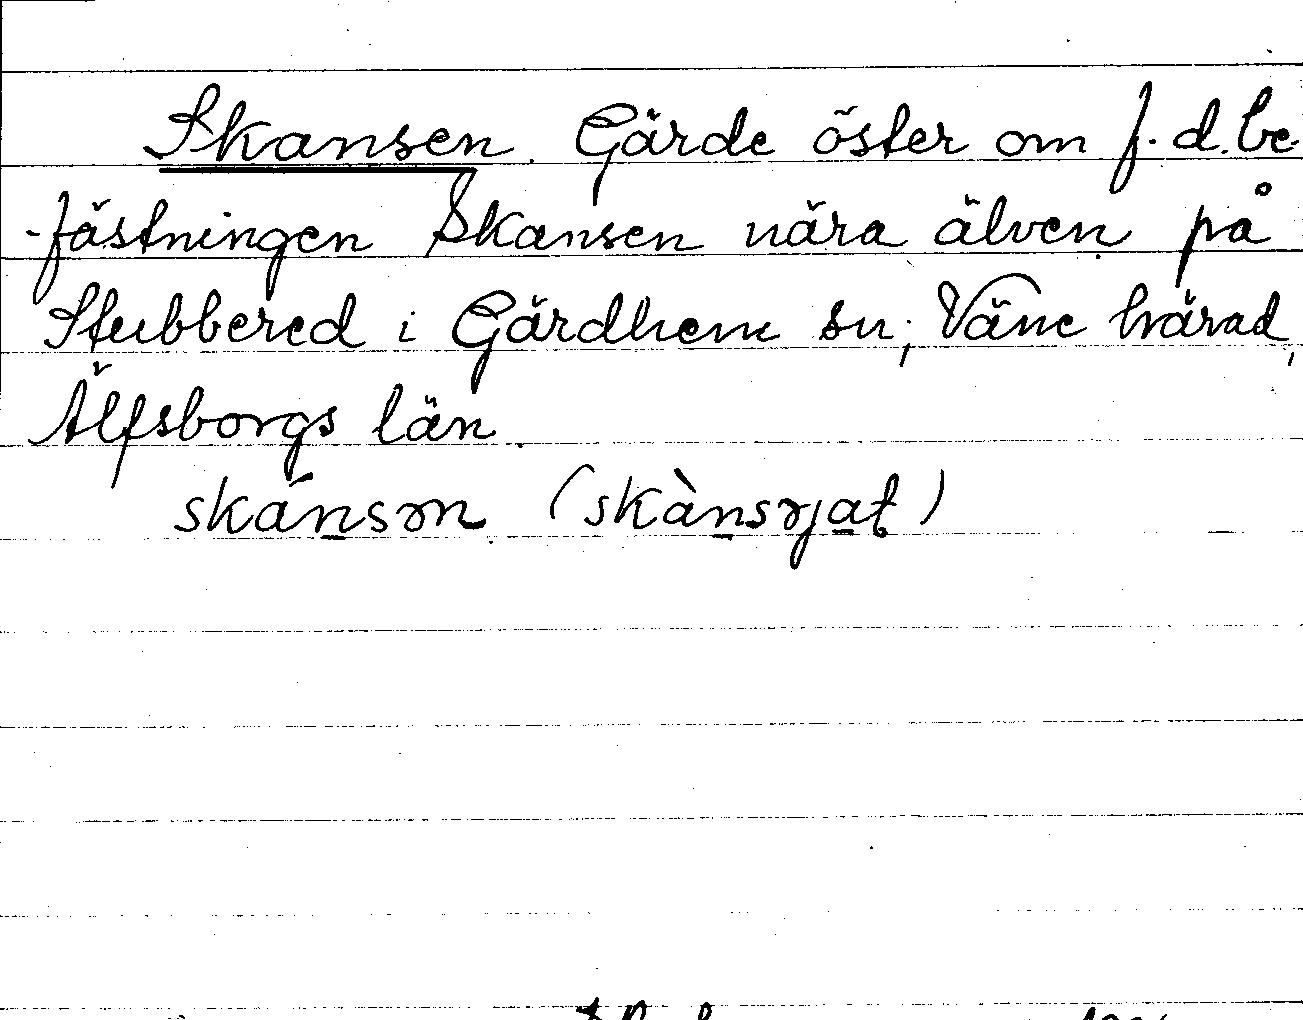 Skansen. Gärde öster om f.d. be-
-fästningen Skansen nära älven på
Stubbered i Gärdhem sn, Väne härad,
Älfsborgs län.